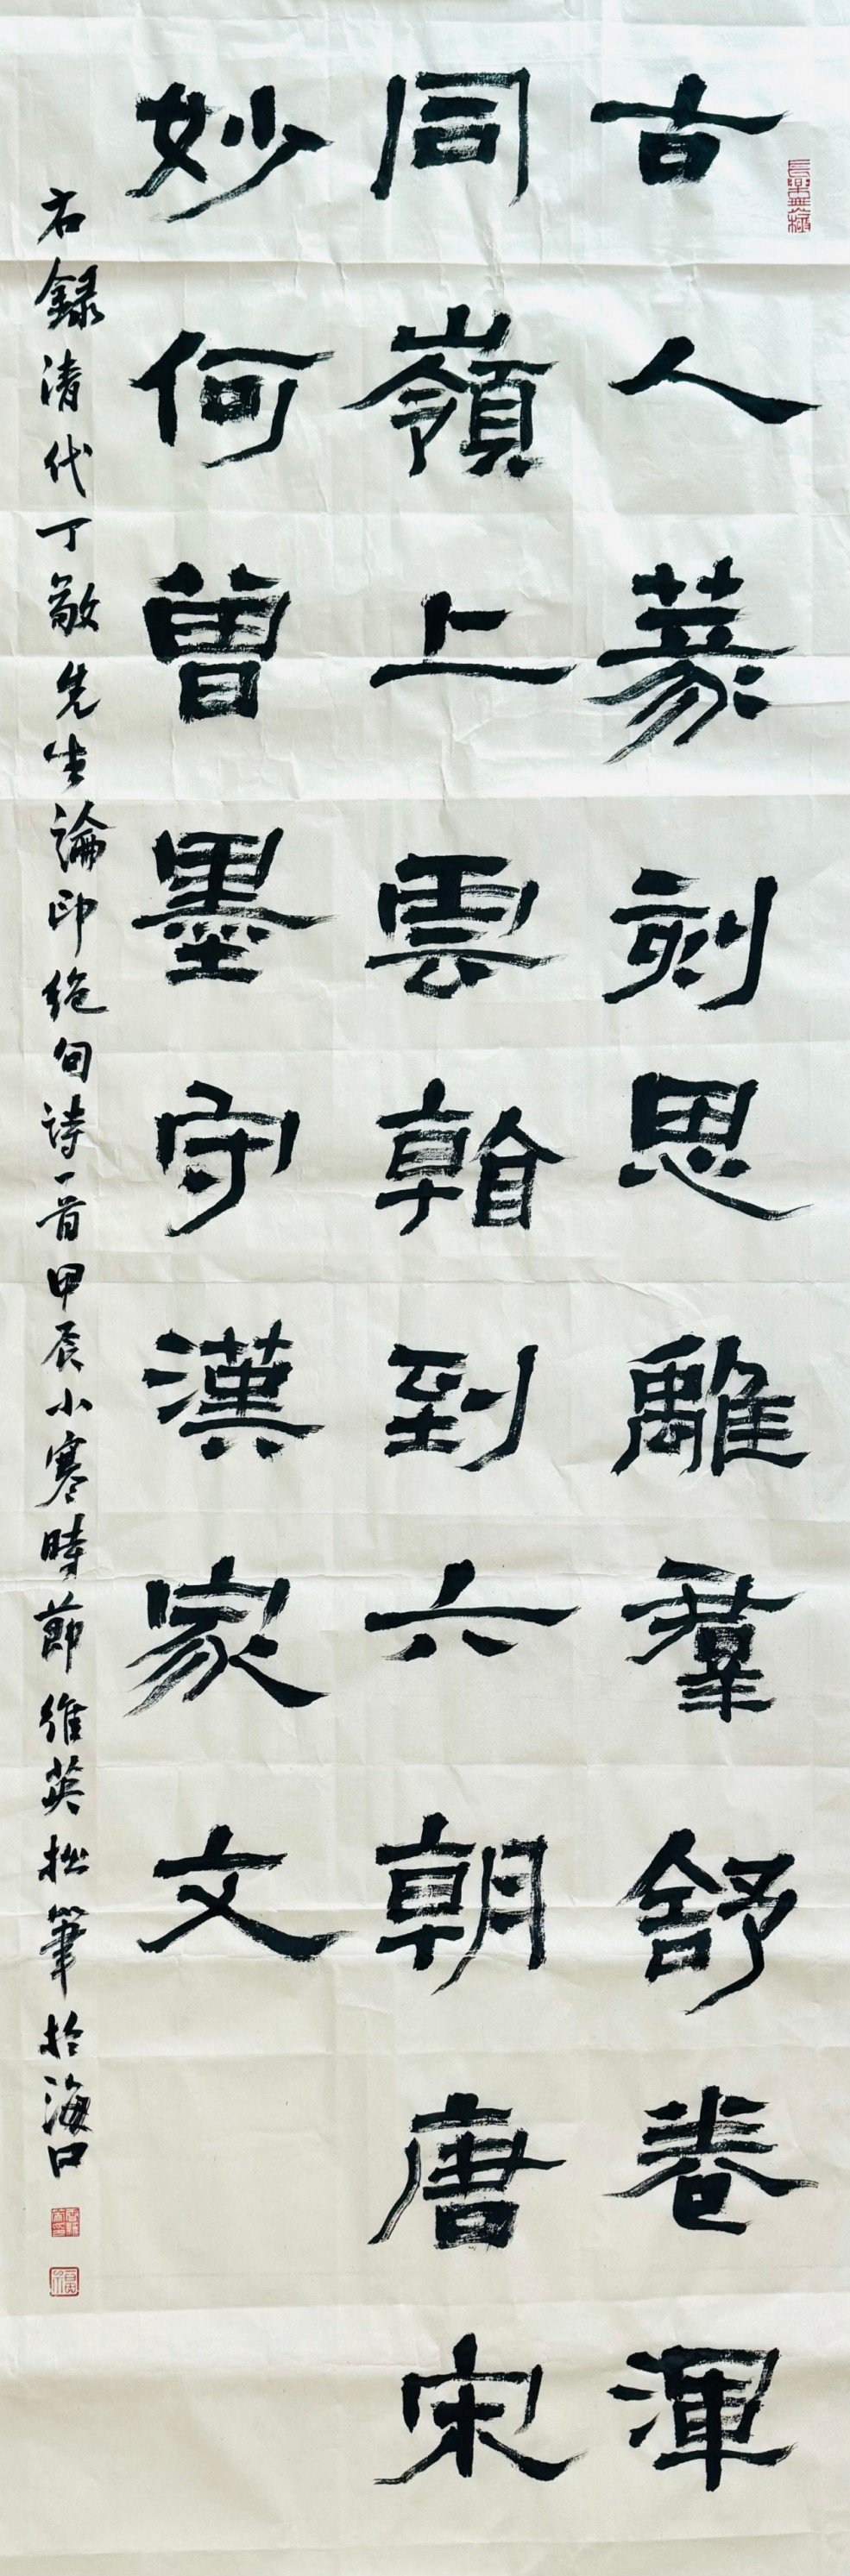 長樂無極
古人篆刻思離羣舒卷渾
同嶺上雲看到六朝唐宋
妙何曾墨守漢家文
右錄清代丁敬先生論印絕句詩一首甲辰小寒時節維英拙筆於海口